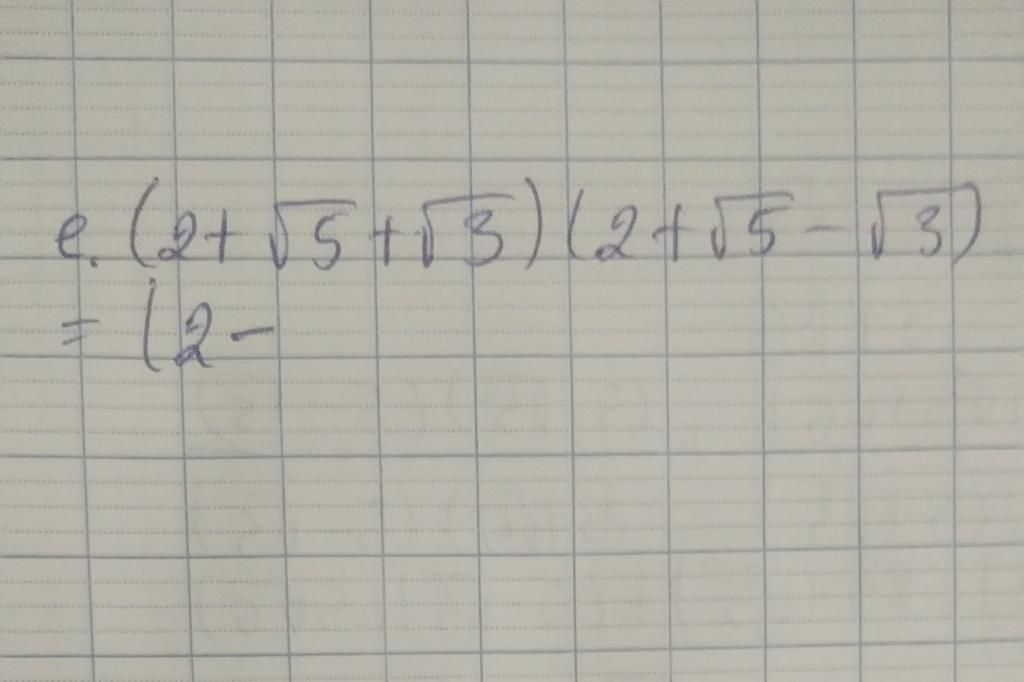 e. (2 + √5 + √3) (2 + √5 - √3)
= (2 -